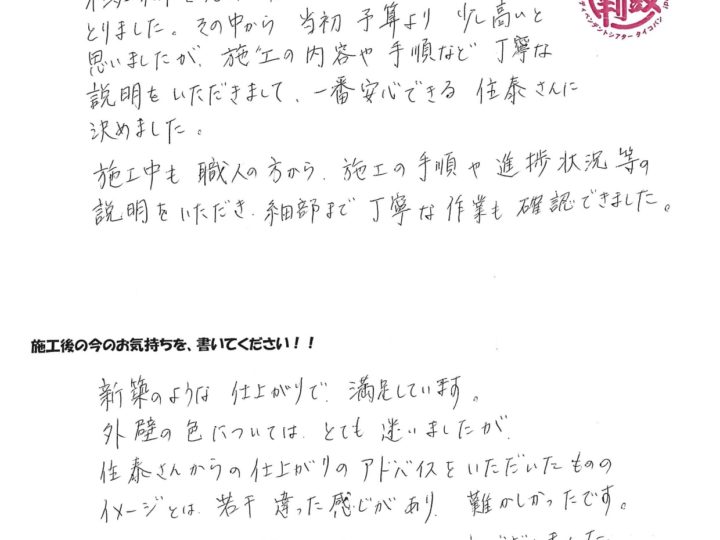 とりました。その中から 当初 予算より 少し高いと
思いましたが、施工の内容や手順など丁寧な
説明をいただきまして、一番安心できる 住泰さんに
決めました。
施工中も職人の方から、施工の手順や進捗状況等の
説明をいただき、細部まで丁寧な作業も確認できました。
施工後の今のお気持ちを、書いてください!!
新築のような仕上がりで、満足しています。
外壁の色については、とても迷いましたが、
住泰さんからの仕上がりのアドバイスをいただいたものの
イメージとは、若干違った感じがあり、難かしかったです。